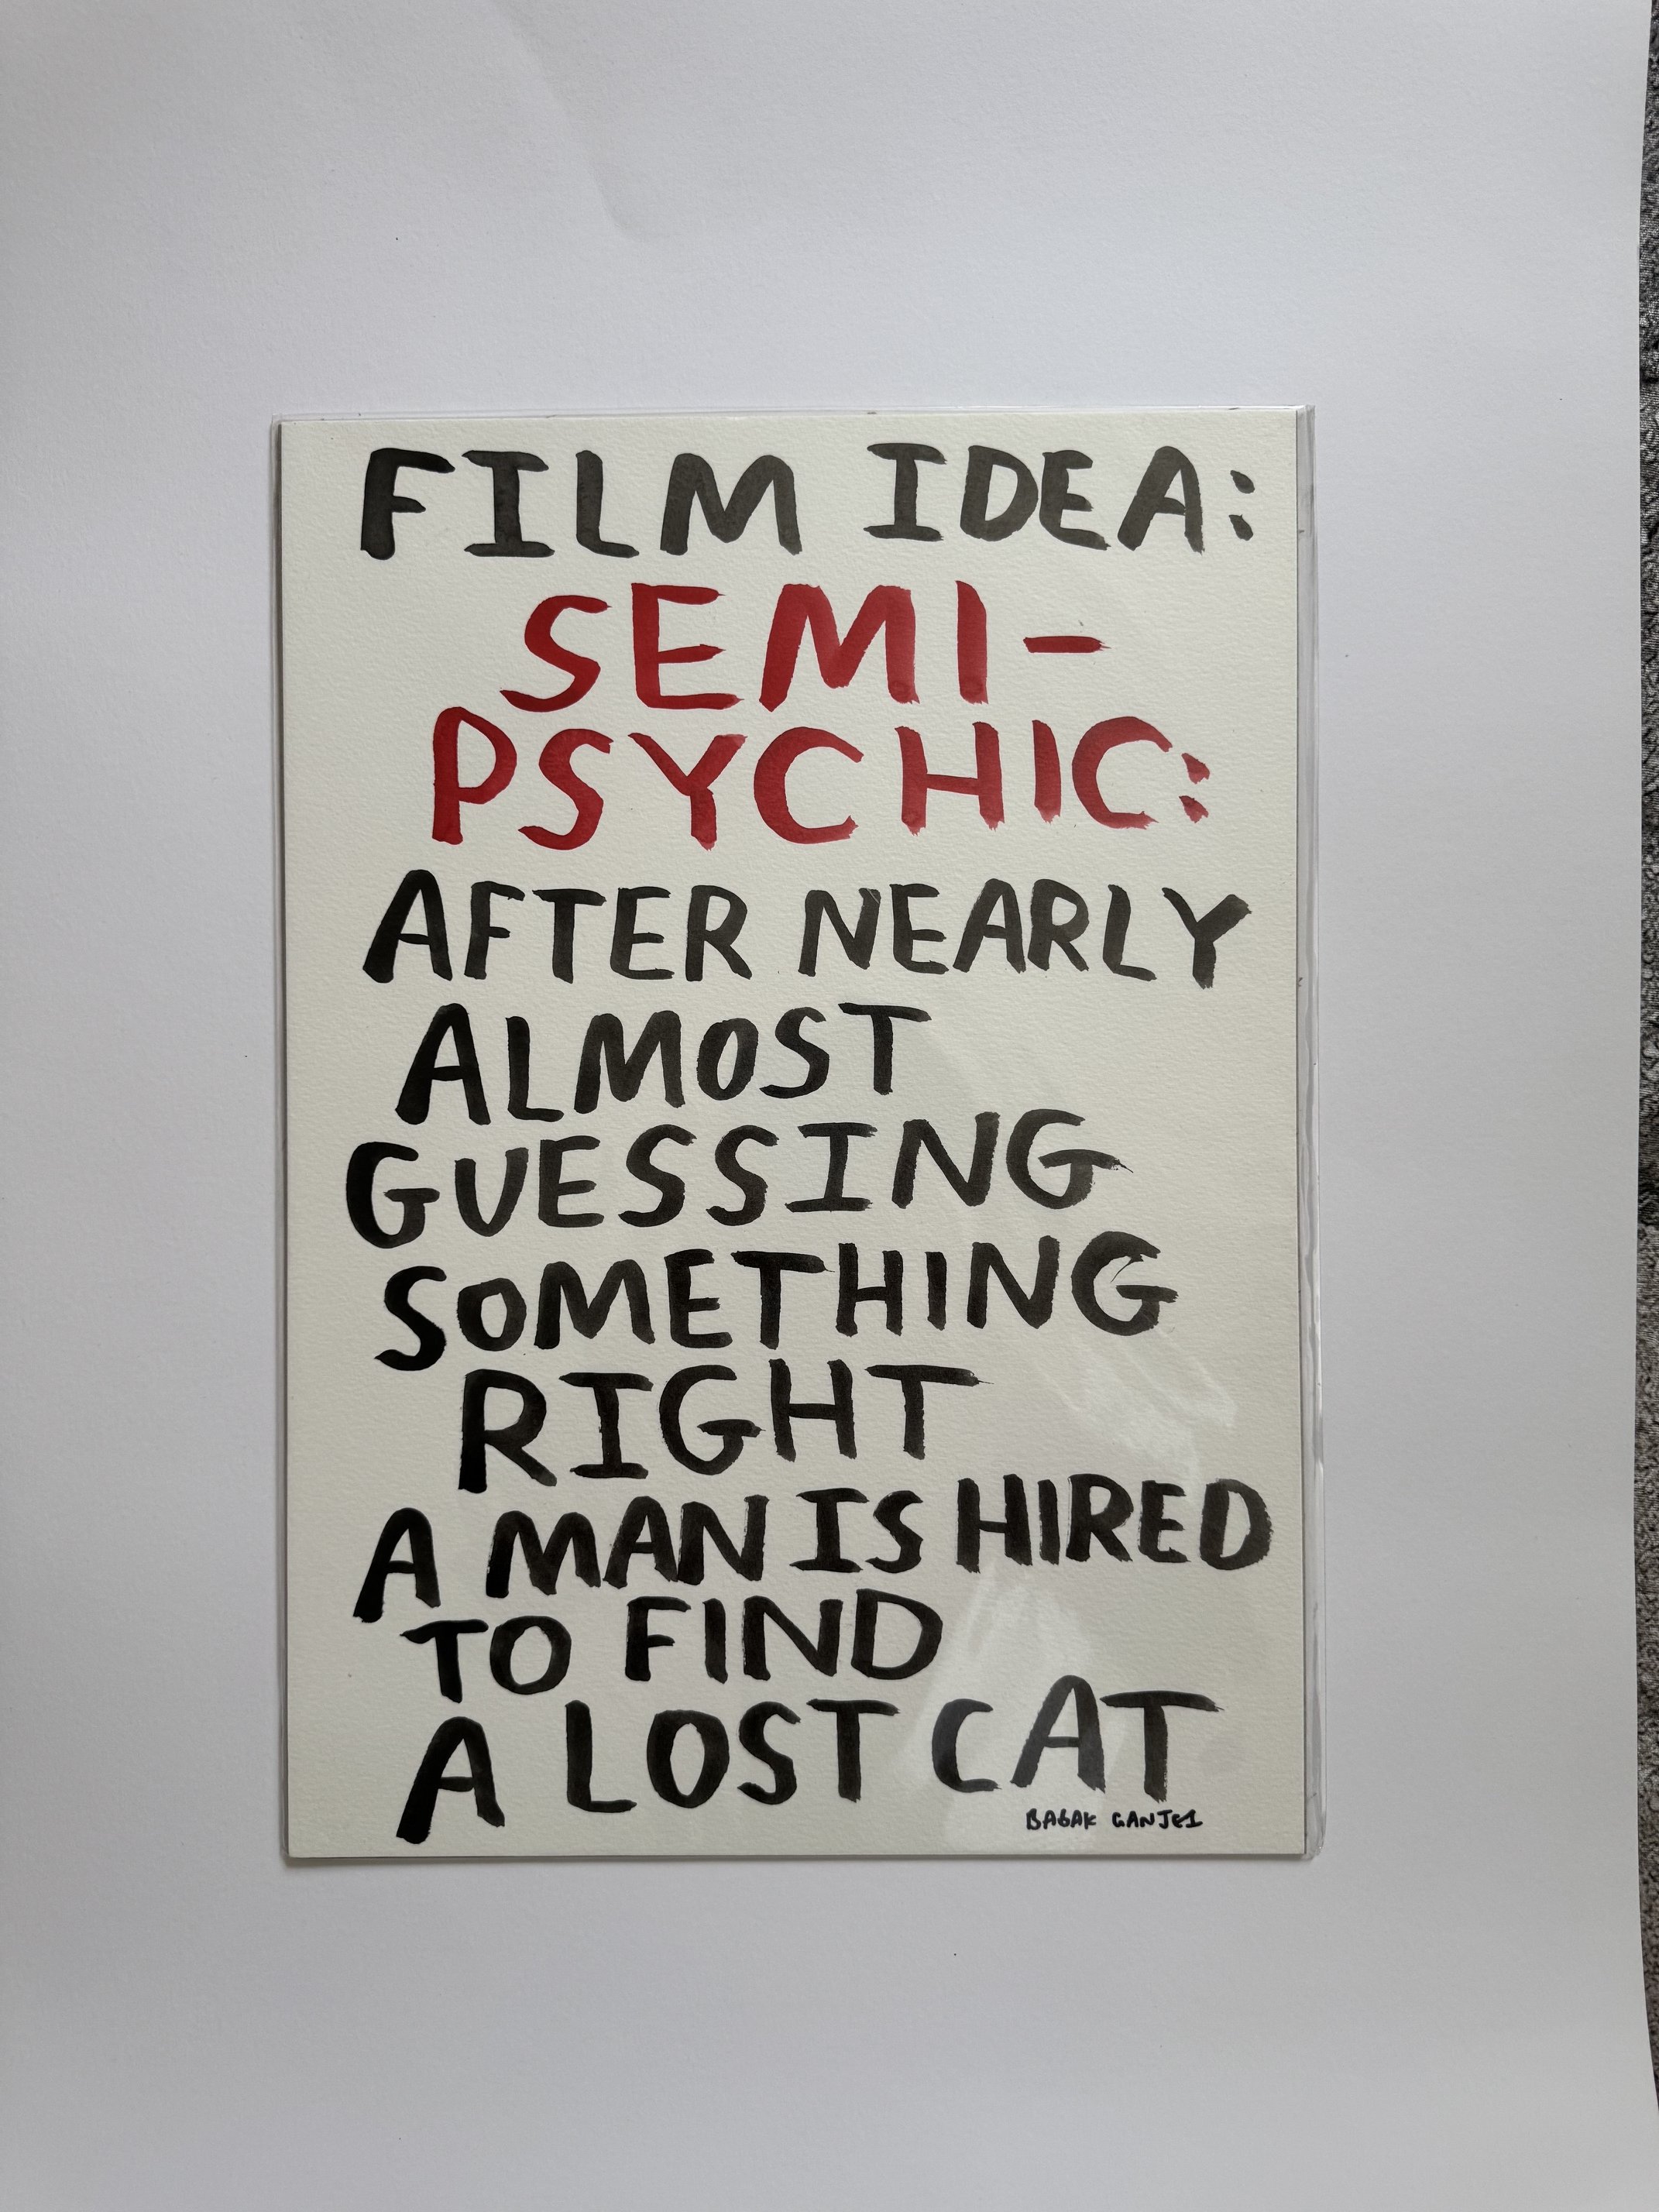 FILM IDEA:
SEMI-
PSYCHIC:
AFTER NEARLY
ALMOST
GUESSING
SOMETHING
RIGHT
A MAN IS HIRED
TO FIND
A LOST CAT
BABAK GANJEI